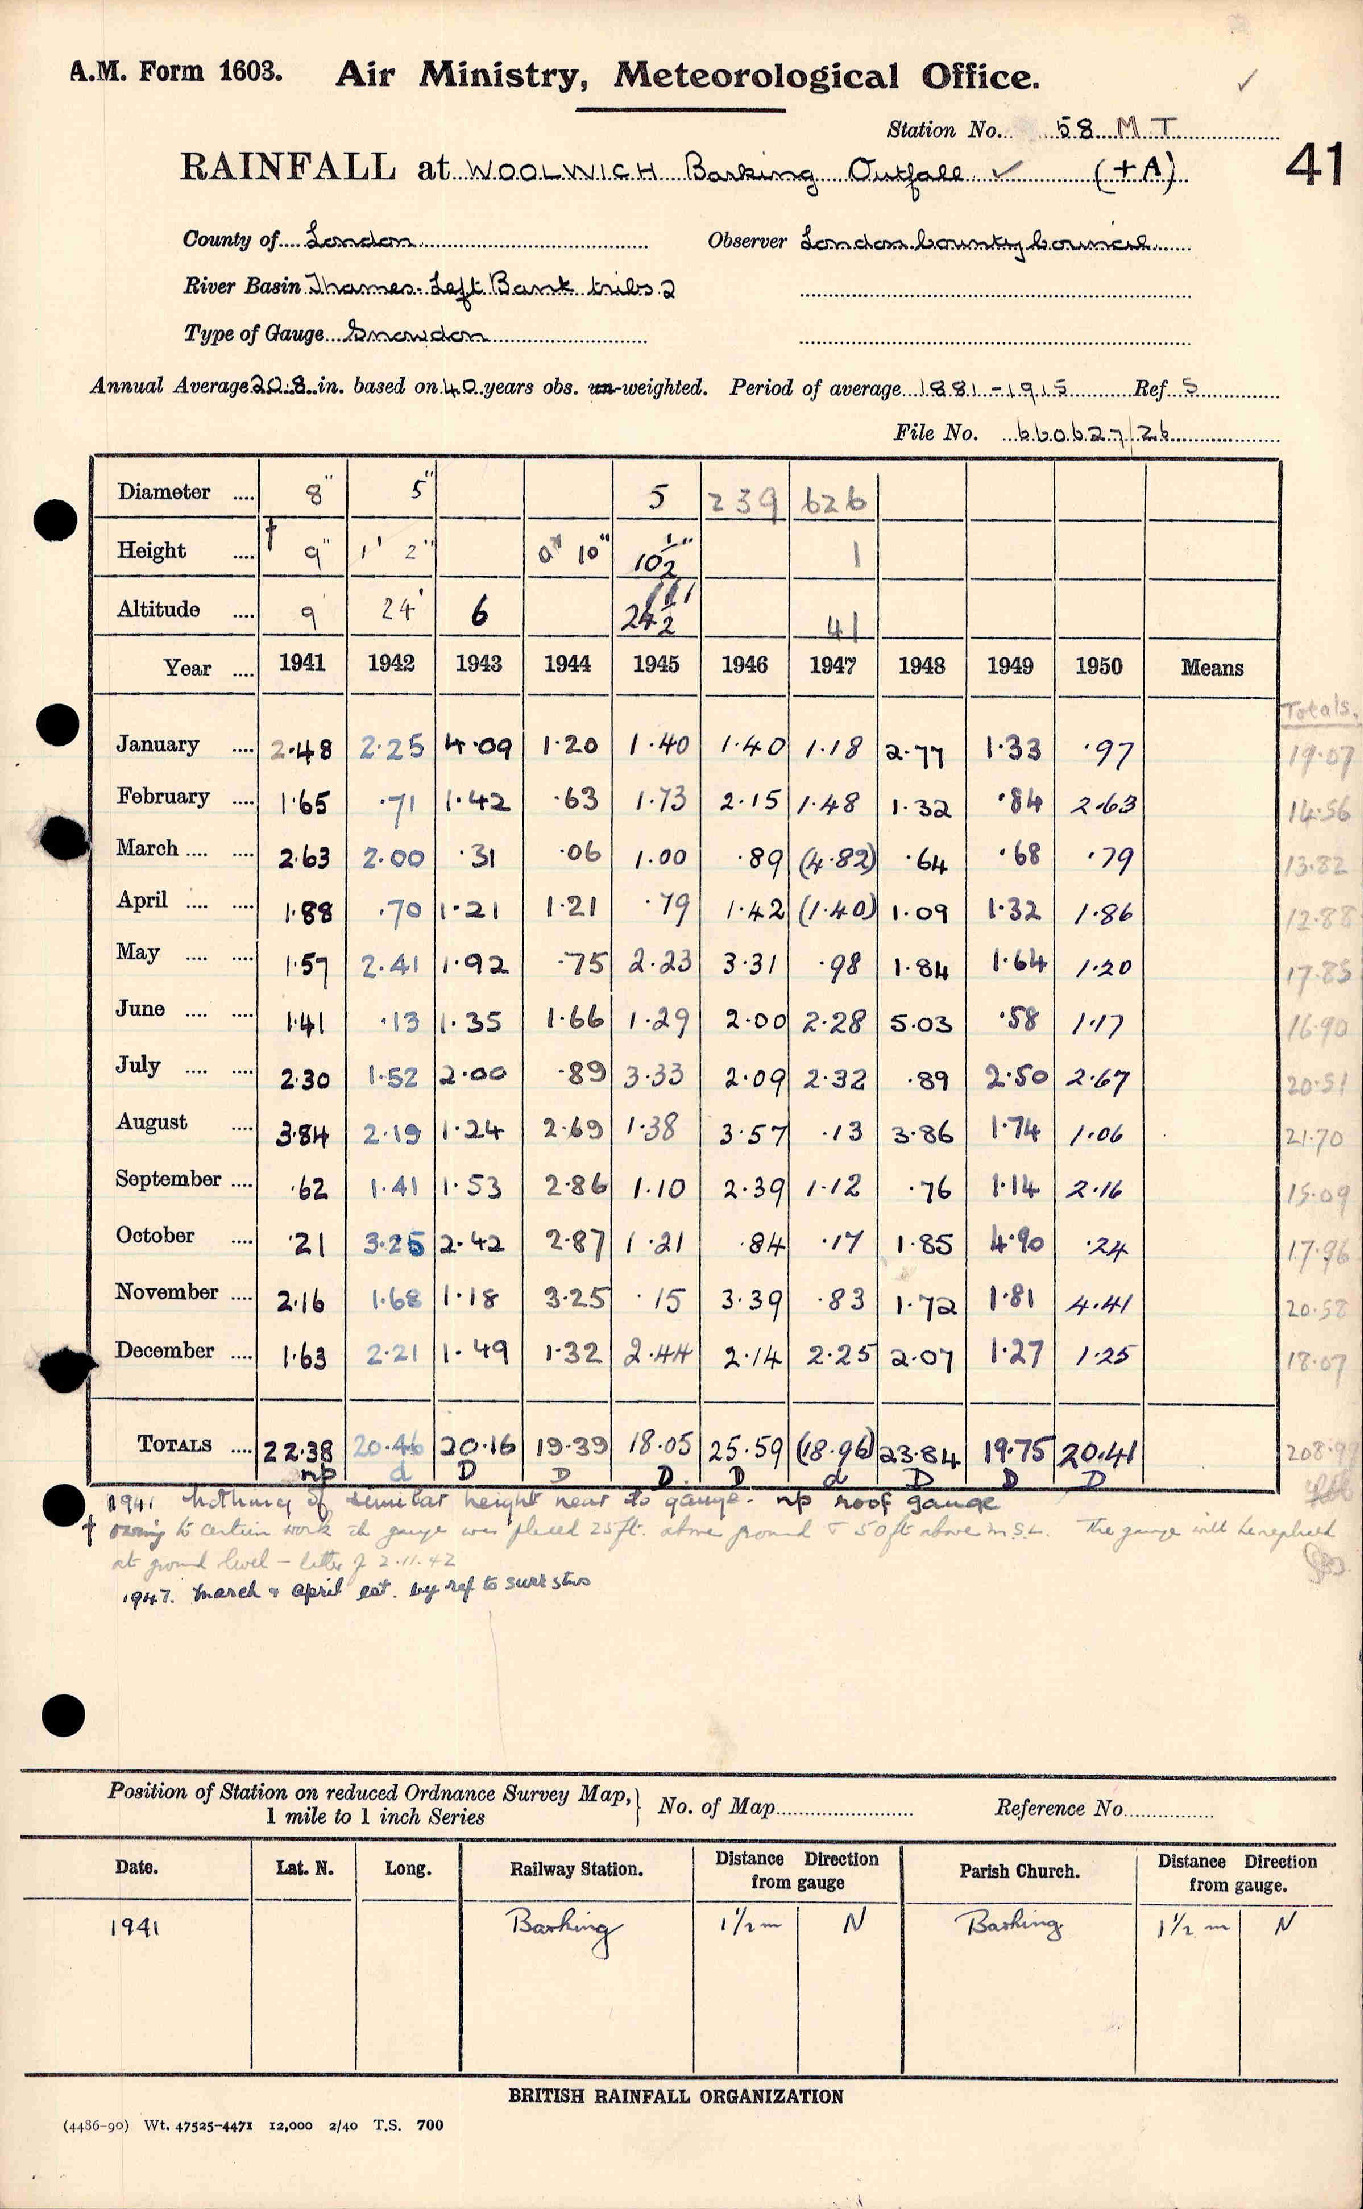 A.M. Form 1603. Air Ministry, Meteorological Office. ✓
Station No. 58 M T
RAINFALL at WOOLWICH Barking Outfall ✓ (+A) 41
County of London Observer London County Council
River Basin Thames. Left Bank tribs. 2
Type of Gauge Snowdon
Annual Average 20.8 in. based on 40 years obs. un-weighted. Period of average 1881-1915 Ref. 5
File No. 660627/26
Diameter .... 8" 5" 5 239 626
Height .... † 9" 1' 2" 0" 10" 10½" 1
Altitude .... 9 24' 6 24½ 41
Year .... 1941 1942 1943 1944 1945 1946 1947 1948 1949 1950 Means
Totals.
January .... 2.48 2.25 4.09 1.20 1.40 1.40 1.18 2.77 1.33 .97 19.07
February .... 1.65 .71 1.42 .63 1.73 2.15 1.48 1.32 .84 2.63 14.56
March .... .... 2.63 2.00 .31 .06 1.00 .89 (4.82) .64 .68 .79 13.82
April .... .... 1.88 .70 1.21 1.21 .79 1.42 (1.40) 1.09 1.32 1.86 12.88
May .... .... 1.57 2.41 1.92 .75 2.23 3.31 .98 1.84 1.64 1.20 17.85
June .... .... 1.41 .13 1.35 1.66 1.29 2.00 2.28 5.03 .58 1.17 16.90
July .... .... 2.30 1.52 2.00 .89 3.33 2.09 2.32 .89 2.50 2.67 20.51
August .... 3.84 2.19 1.24 2.69 1.38 3.57 .13 3.86 1.74 1.06 21.70
September .... .62 1.41 1.53 2.86 1.10 2.39 1.12 .76 1.14 2.16 15.09
October .... .21 3.25 2.42 2.87 1.21 .84 .17 1.85 4.90 .24 17.96
November .... 2.16 1.68 1.18 3.25 .15 3.39 .83 1.72 1.81 4.41 20.58
December .... 1.63 2.21 1.49 1.32 2.44 2.14 2.25 2.07 1.27 1.25 18.07
TOTALS .... 22.38 20.46 20.16 19.39 18.05 25.59 (18.96) 23.84 19.75 20.41 208.99
np d D D D. D d D D D
1941 nothing of similar height near to gauge. np roof gauge
† owing to certain work the gauge was placed 25ft. above ground & 50ft above M.S.L. The gauge will be replaced
at ground level - letter of 2.11.42
1947. March & April est. by ref to surr stns
Position of Station on reduced Ordnance Survey Map, 1 mile to 1 inch Series } No. of Map Reference No.
Date. Lat. N. Long. Railway Station. Distance Direction from gauge Parish Church. Distance Direction from gauge.
1941 Barking 1½ m N Barking 1½ m N
BRITISH RAINFALL ORGANIZATION
(4486-90) Wt. 47525-4471 12,000 2/40 T.S. 700